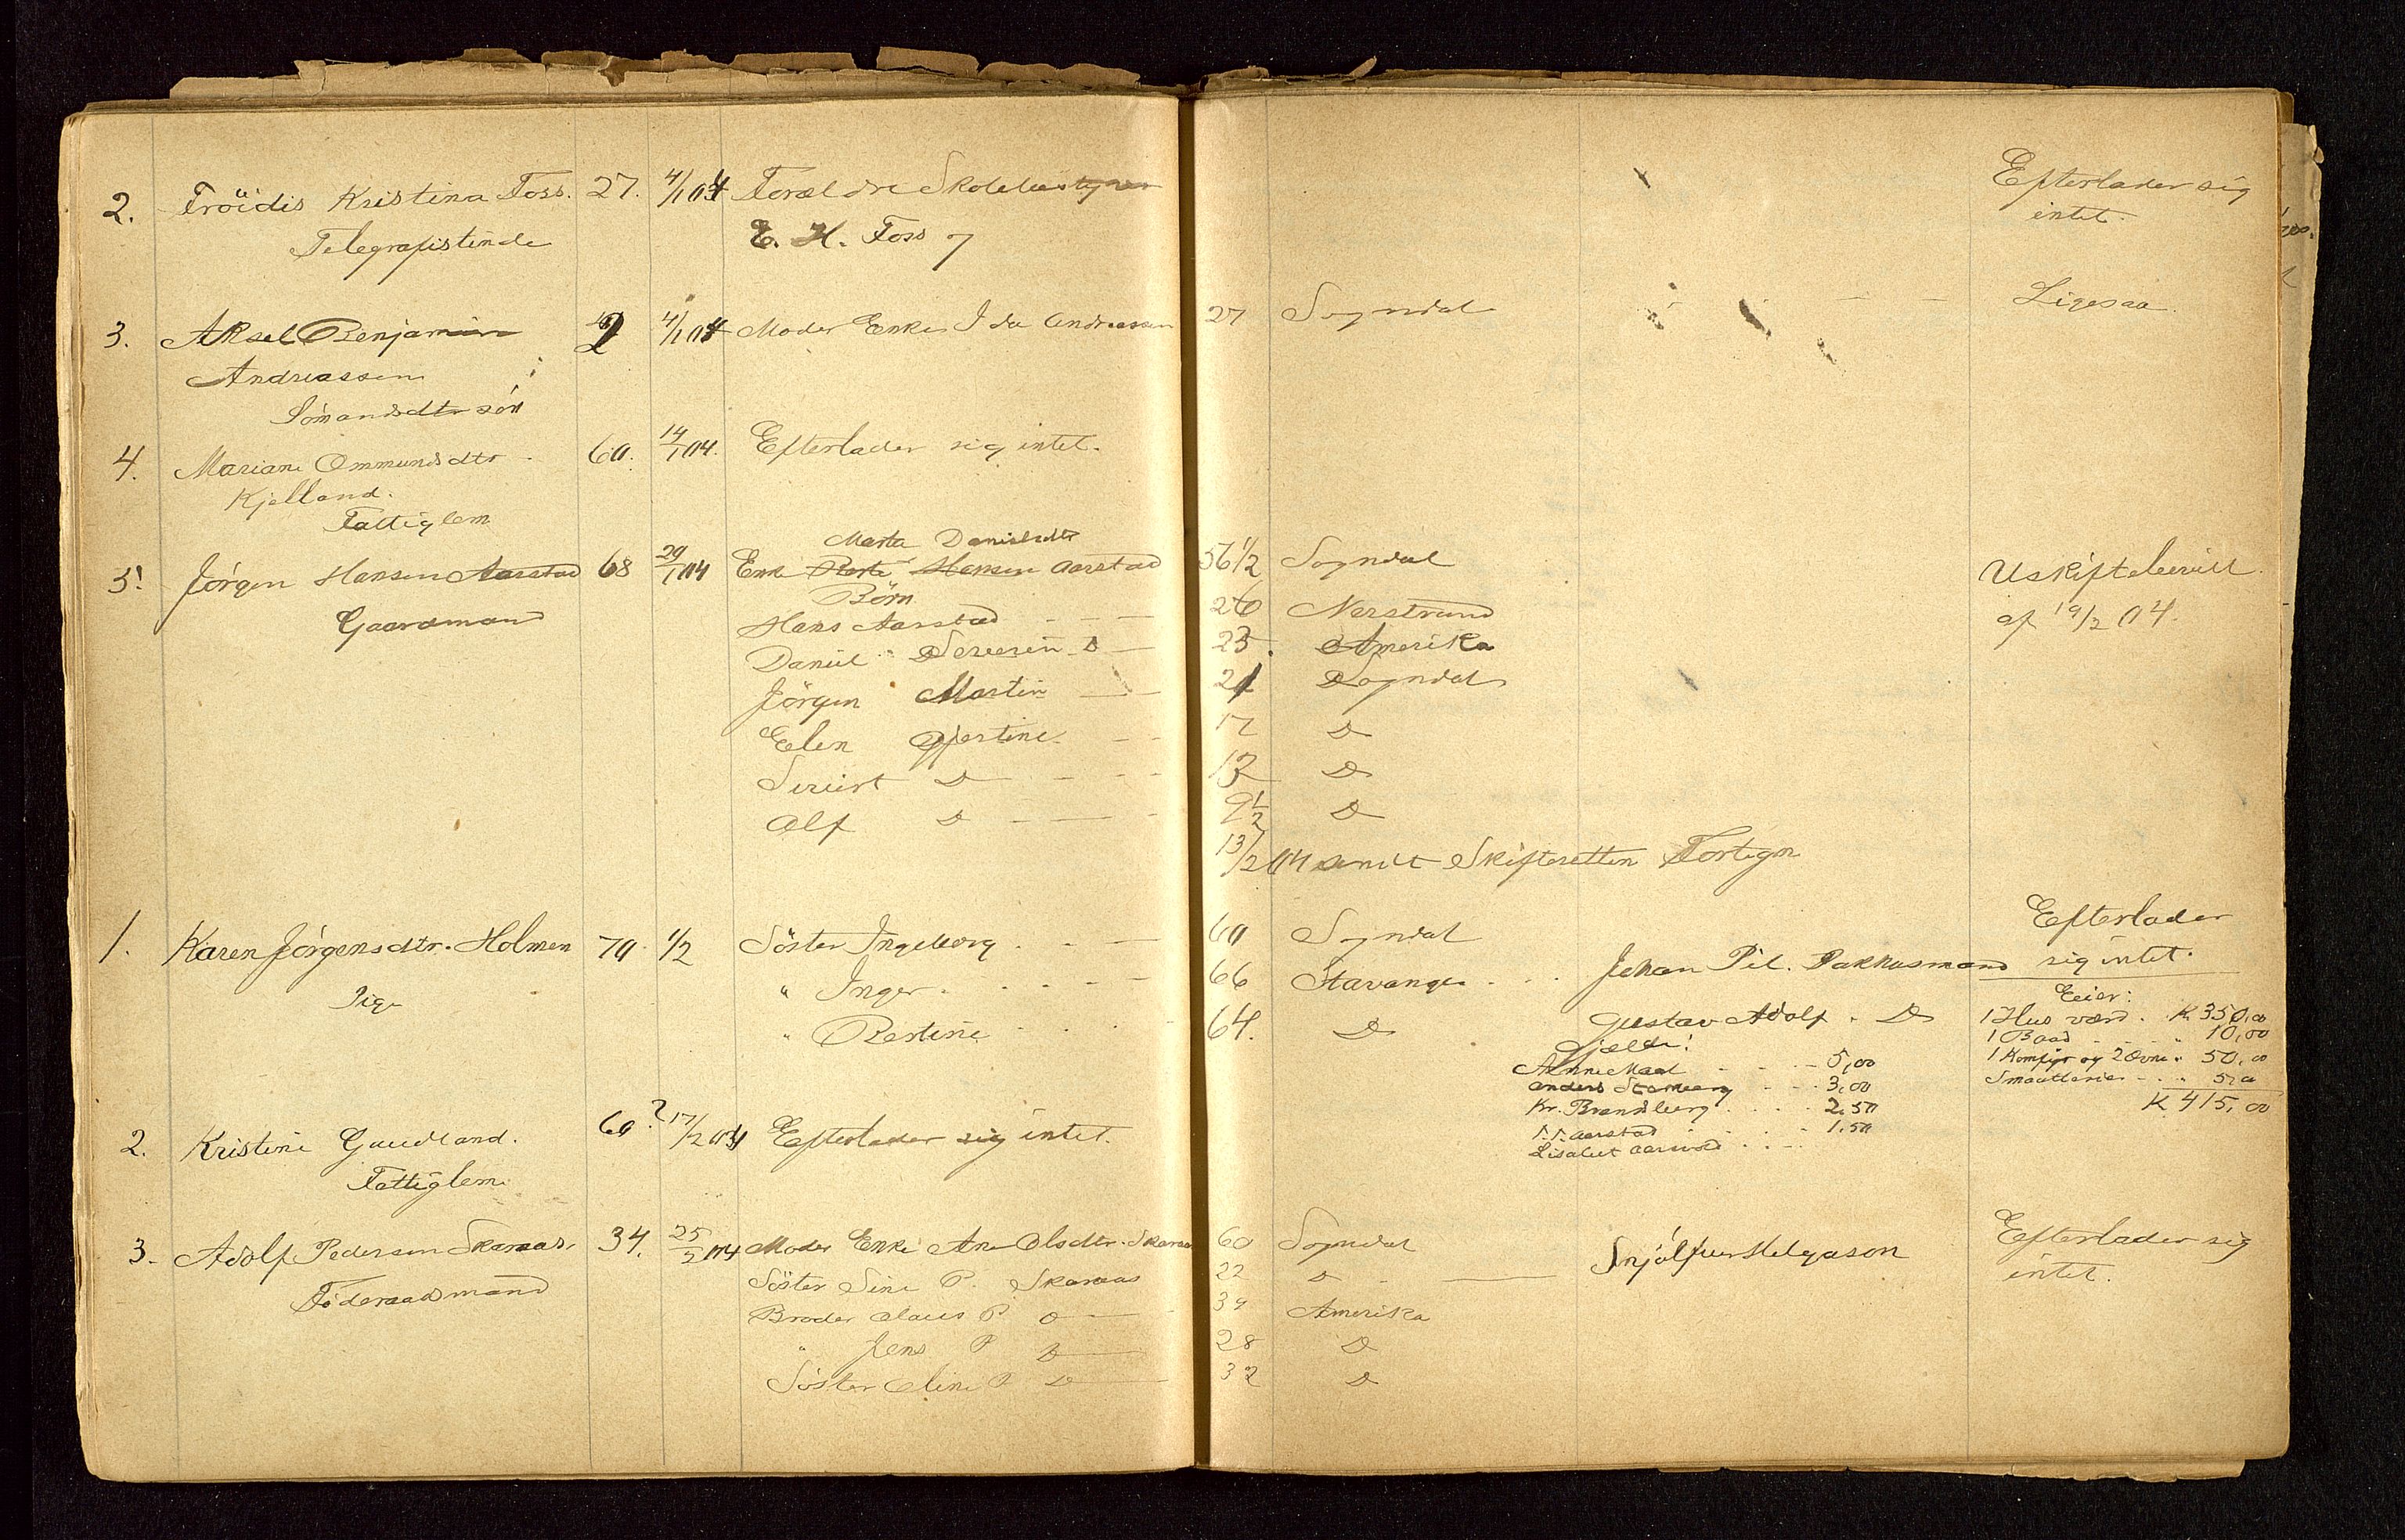 2. Fröidis Kristina Foss. 27. 4/1 04 Foræl dre Skolebestyrer
Telegrafistinde E. H. Foss 7
Efterlader sig
intet.
3. Aksel Benjamin 2 4/1 04 Moder Enke Ida Andreassen 27 Sogndal Ligesaa.
Andreassen
Sömandsdtr sön
4. Mariane Ommundsdtr 60. 14/1 04. Efterlader sig intet.
Kjelland.
Fattiglem
Marta Danielsdtr
5. Jörgen Hansen Aarstad 68 29/1 04 Enke Berte Hansen Aarstad 56 1/2 Sogndal Uskiftebevill.
Gaardmand Börn af 19/2 04.
Hans Aarstad - - - 26 Nerstrand
Daniel Severin D - 23. Amerika
Jörgen Martin - 21 Sogndal
Elen Gjertine - - 17 D
Sivert D - - - 13 D
Alf D - - - 9 1/2 D
13/2 04 sendt Skifteretten Fortegn
1. Karen Jörgensdtr. Holmen 70. 1/2 Söster Ingeborg - - - 60 Sogndal Efterlader
Pige " Inger - - - - 66 Stavanger . . Johan Pil. Pakhusmand sig intet.
" Bertine - - - 64. D Gustav Adolf . D
Eier:
1 Hus værd . K 350,00
1 Baad - - " 10,00
1 Komfyr og 2 Ovne " 50,00
Smaatterier - - " 5,00
K 415,00
Gjæld:
Anne Maal - - - 5,00
Anders Stamberg - - - 3,00
Kr. Brandsberg . . . . 2.50
Aarstad - 1.50
Lisabet Aarstad . . -
2. Kristine Gaudland. 60? 17/2 04 Efterlader sig intet.
Fattiglem.
3. Adolf Pedersen Skaraas. 34. 25/2 04 Moder Enke Ane Olsdtr. Skaraas 60 Sogndal Snjólfur Helgason Efterlader sig
Föderaadsmand Söster Sine P. Skaraas 22 D - intet.
Broder Claus P D - 39 Amerika
" Jens P D - 28 D
Söster Eline P D - 32 D